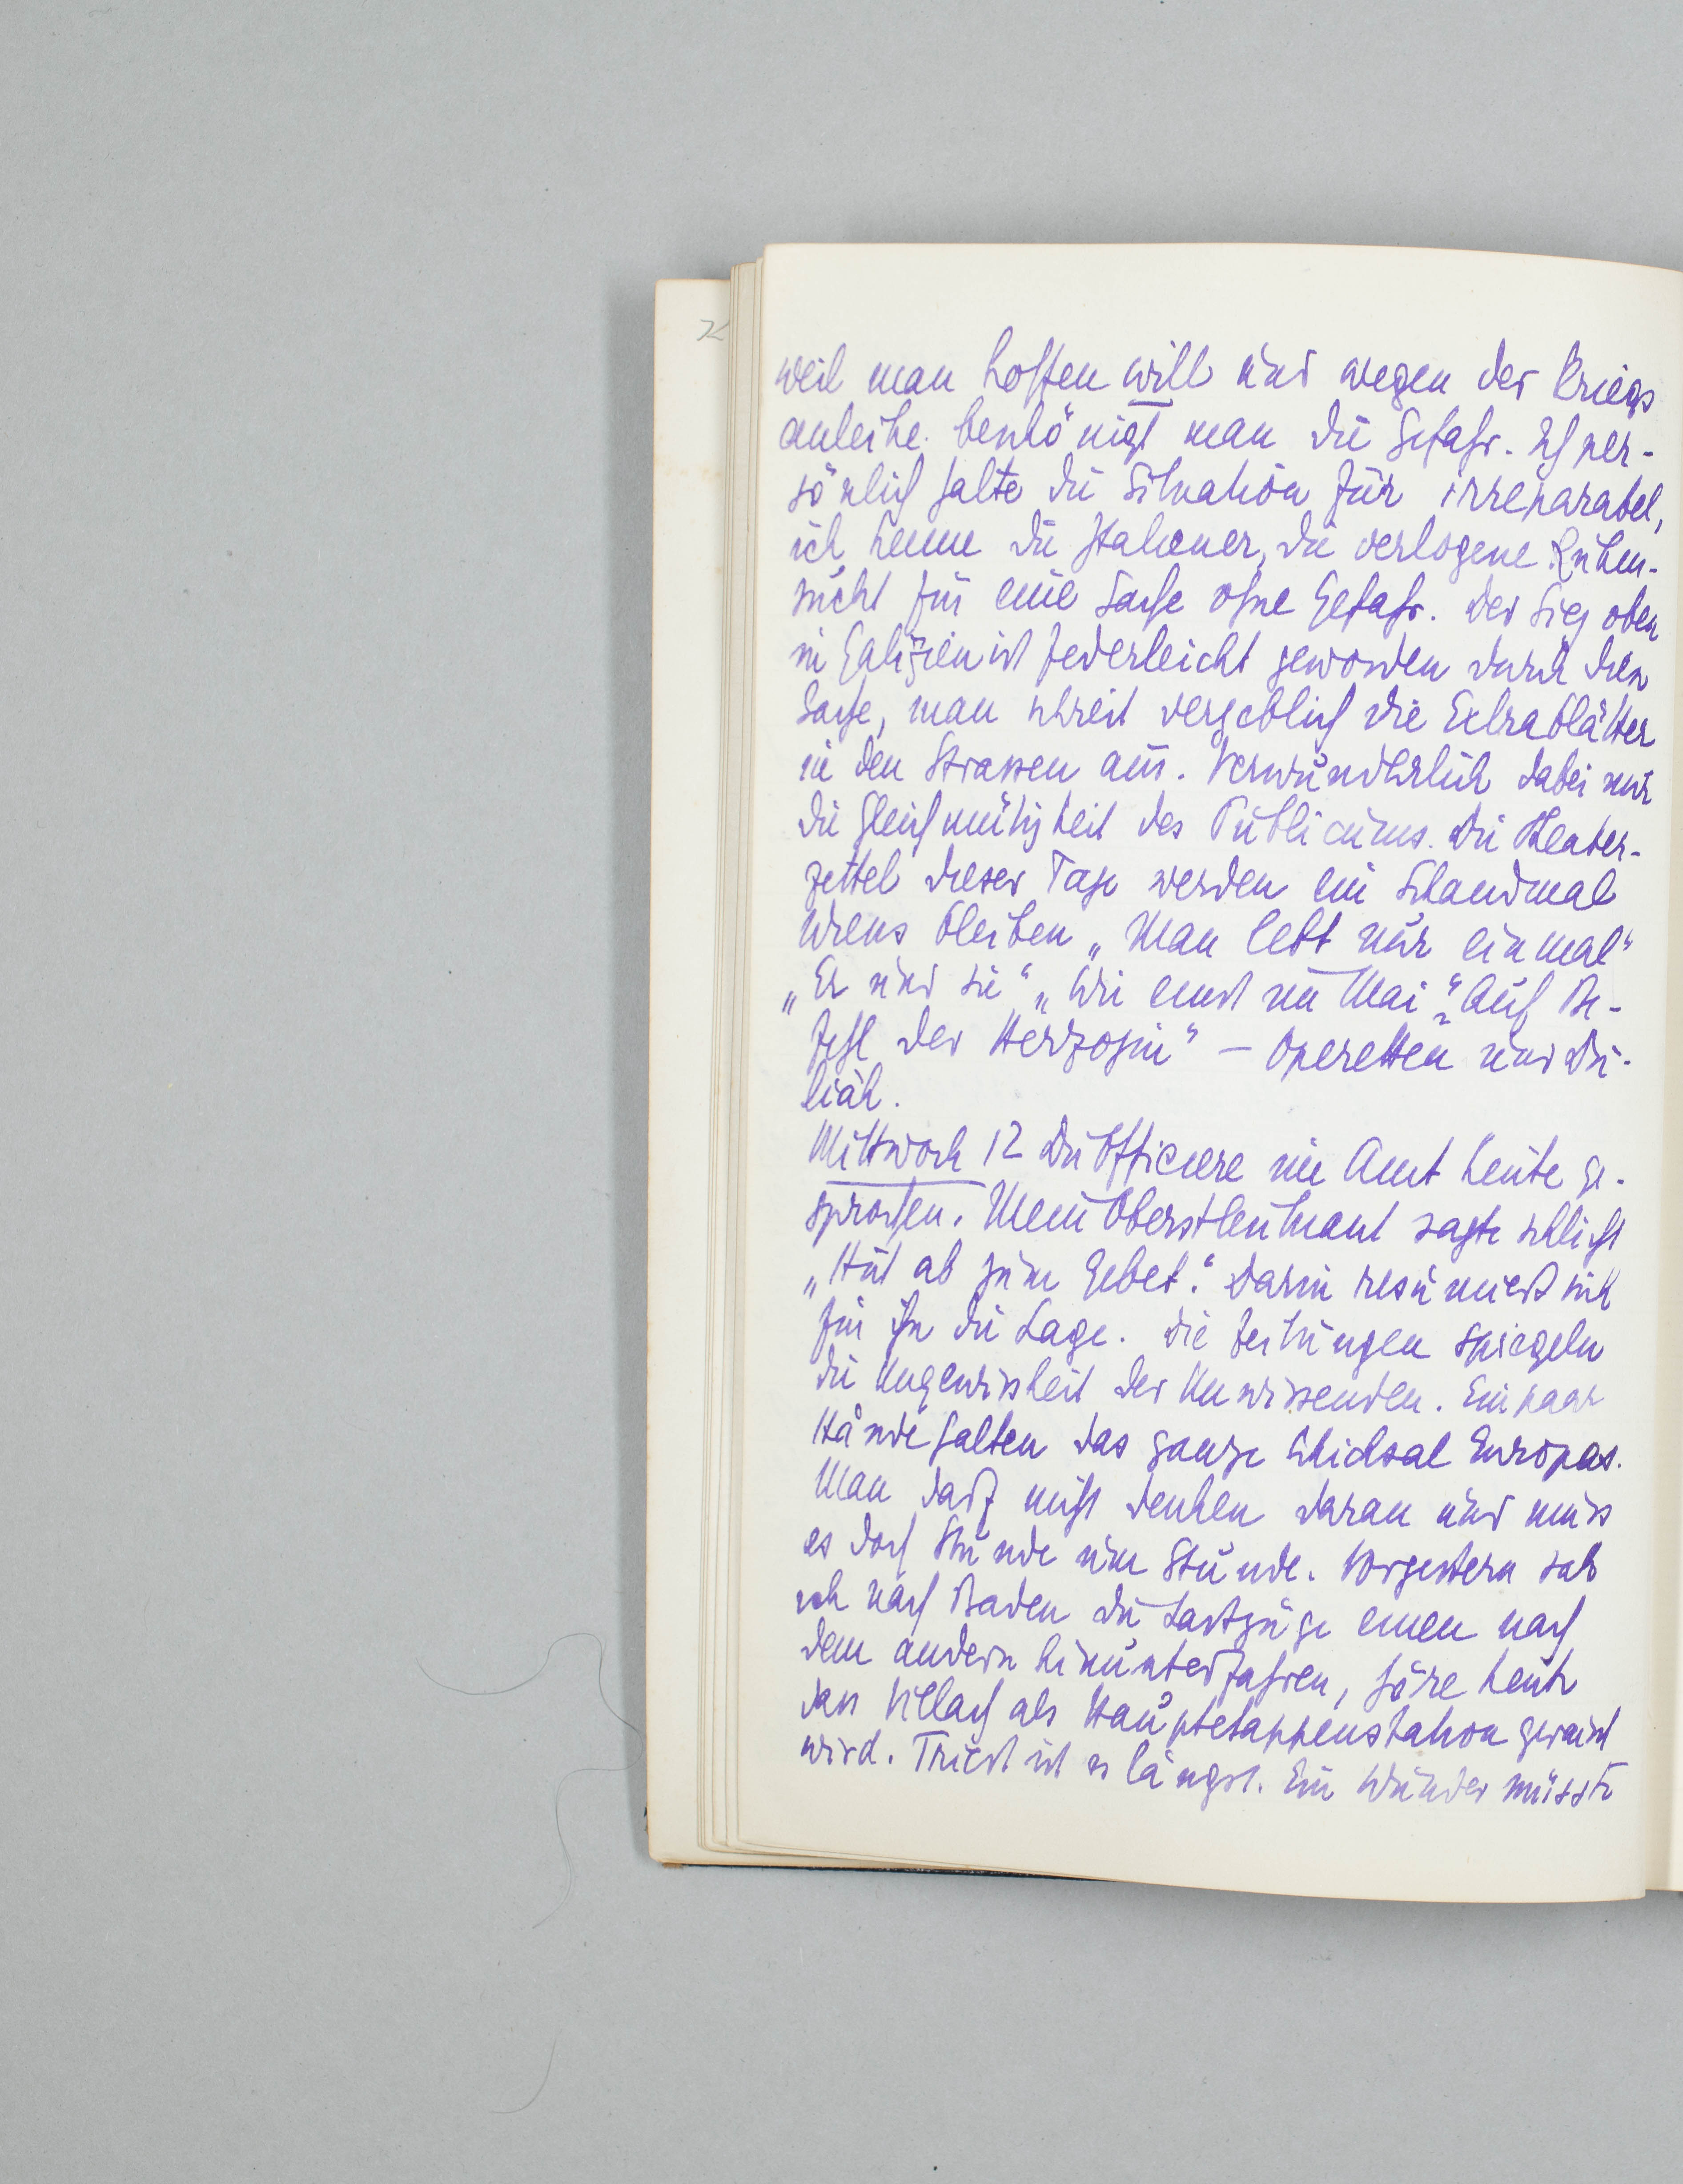 weil man hoffen will und wegen der Kriegs
anleihe beschönigt man die Gefahr. Ich per-
sönlich halte die Situation für irreparabel,
ich kenne die Italiener, die verlogene Ruhm-
sucht für eine Sache ohne Gefahr. Der Sieg oben
in Galizien ist federleicht geworden durch diese
Sache, man schreit vergeblich die Extrablätter
in den Strassen aus. Verwunderlich dabei nur
die Gleichmütigkeit des Publicums. Die Theater-
zettel dieser Tage werden ein Schandmal
Wiens bleiben „Man lebt nur einmal“
„Er und sie“ „Wie einst im Mai“ „Auf Be-
fehl der Herzogin“ – Operetten und Du-
liäh.
Mittwoch 12 Die Officiere im Amt heute ge-
sprochen. Mein Oberstleutnant sagte schlicht
„Hut ab zum Gebet.“ Darin resumiert sich
für ihn die Lage. Die Zeitungen spiegeln
die Ungewissheit der Unwissenden. Ein paar
Hände halten das ganze Schicksal Europas.
Man darf nicht denken daran und muss
es doch Stunde um Stunde. Vorgestern sah
ich nach Baden die Lastzüge einen nach
dem andern hinunterfahren, höre heute
dass Villach als Hauptetappenstation geräumt
wird. Triest ist es längst. Ein Wunder müsste